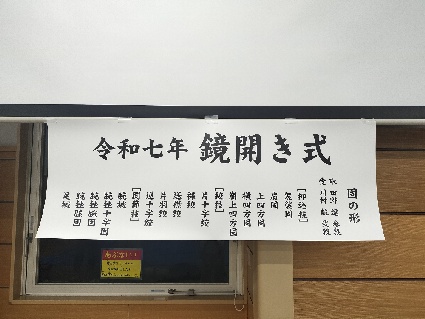 令和七年 鏡開き式
固の形
取
受 川村
[抑込技]
袈裟固
肩固
上四方固
横四方固
崩上四方固
[絞技]
片十字絞
裸絞
送襟絞
片羽絞
逆十字絞
[関節技]
腕緘
腕挫十字固
腕挫腕固
腕挫膝固
足緘
あぶない!!